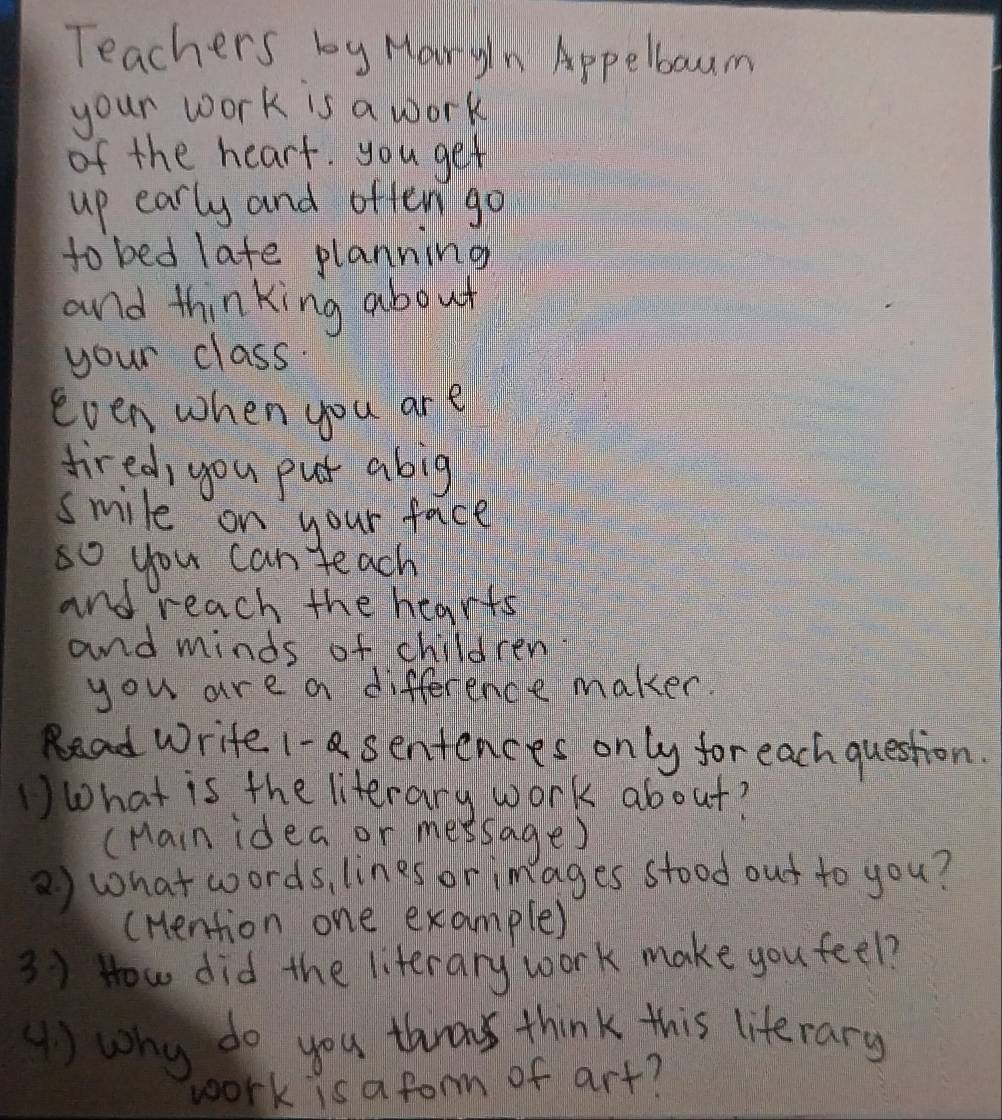 Teachers by Maryln Appelbaum
your work is a work
of the heart. you get
up early and often go
to bed late planning
and thinking about
your class.
Even when you are
tired, you put a big
smile on your face
so you can teach
and reach the hearts
and minds of children.
you are a difference maker.
Read Write 1-2 sentences only for each question.
1) What is the literary work about?
(Main idea or message)
2.) What words, lines or images stood out to you?
(Mention one example)
3.) How did the literary work make you feel?
4.) Why do you think this literary
work is a form of art?